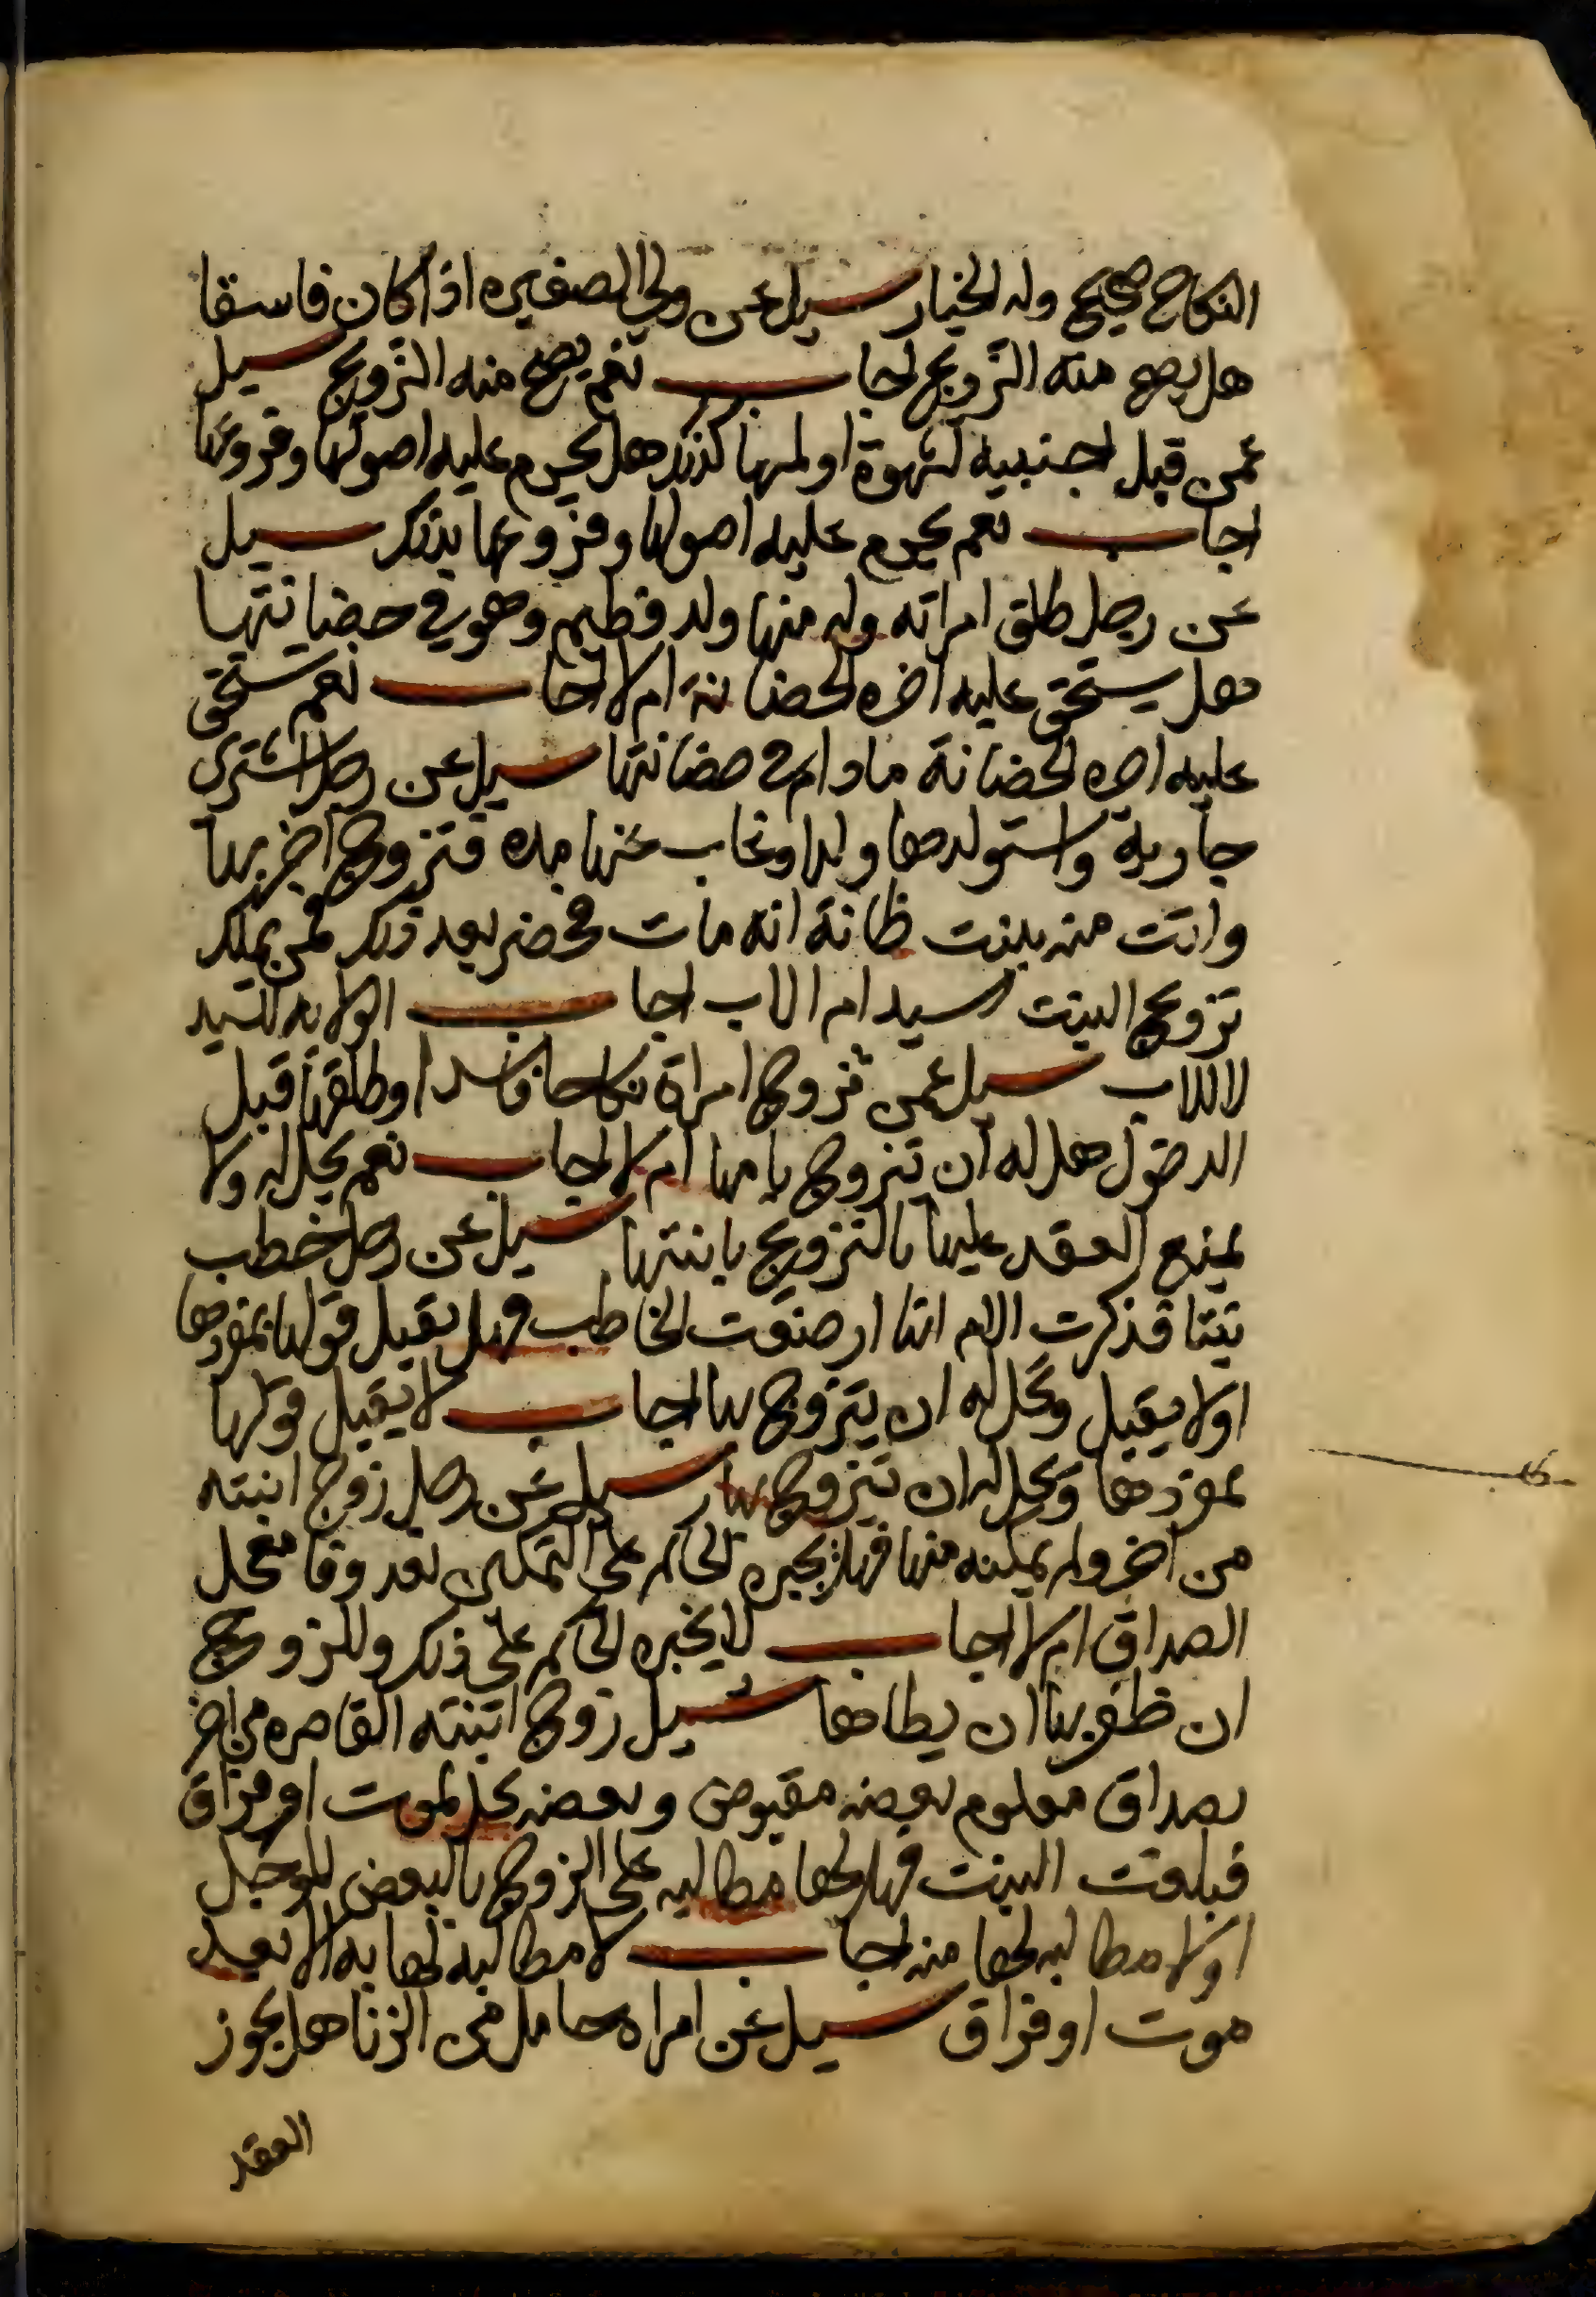 النكاح صحيح وله الخيار سيل عن ولي الصغيره اذا كان فاسقا
هل يصح منه التزويج اجاب نعم يصح منه التزويج سيل
عمن قبل اجنبيه لشهوة او لمسها كذلك هل يحرم عليه اصولها وفروعها
اجاب نعم يحرم عليه اصولها وفروعها بذلك سيل
عن رجل طلق امراته وله منها ولد فطيم وهو في حضانتها
هل يستحق عليه اجره الحضانة ام لا اجاب نعم يستحق
عليه اجره الحضانة ما دام في حضانتها سيل عن رجل اشترى
جارية واستولدها ولدا وغاب عنها مده فتزوج اخر بها
واتت منه ببنت ظانة انه مات فحضر بعد ذلك فمن يملك
تزويج البنت السيد ام الاب اجاب الولايه للسيد
لا للاب سيل عمن تزوج امراة نكاحا فاسدا وطلقها قبل
الدخول هل له ان تتزوج بامها ام لا اجاب نعم يحل له ولا
يمنع العقد عليها بالتزويج بابنتها سيل عن رجل خطب
بنتا فذكرت الام انها ارضعت الخاطب فهل يقبل قولها بمفردها
اولا يقبل ويحل له ان يتزوج بها اجاب لا يقبل قولها
بمفردها ويحل له ان يتزوج بها سيل عن رجل زوج ابنته
من اخر ولم يمكنه منها فهل يجبره الحاكم على التمكين بعد وفا معجل
الصداق ام لا اجاب لا يجبره الحاكم على ذلك وللزوج
ان ظفر بها ان يطاها سيل زوج ابنته القاصره من اخر
بصداق معلوم بعضه مقبوض وبعضه يحل بموت او فراق
فبلغت البنت فهل لها مطالبه على الزوج بالبعض المؤجل
اولا مطالبه لها منه اجاب لا مطالبة لها به الا بعد
موت او فراق سيل عن امراه حامل من الزنا هل يجوز
العقد